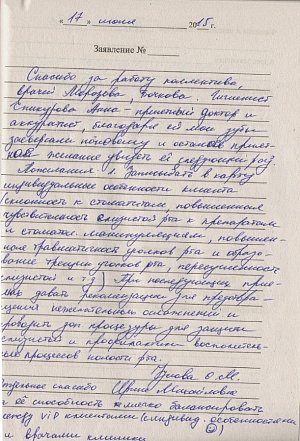 « 17 » июня 2025 г.
Заявление №
Спасибо за работу коллектива,
врачей Морозова, Бочкова. Гигиенист
Анна – приятный доктор и
аккуратист, благодаря ей мои зубы
засверкали по новому и осталось приятное
желание увидеть её следующий раз
Пожелания: 1. Записывать в карту
индивидуальные особенности клиента
(склонность к стоматитам, повышенная
чувствительность слизистой рта к препаратам
и стоматол. манипуляциям, повышен-
ная травматичность уголков рта и образо-
вание трещин уголков рта, пересушенность
слизистой и т.д.) При последующих прие-
мах давать рекомендации для предотвра-
щения нежелательных осложнений и
проводить доп процедуры для защиты
слизистой и профилактики воспалитель-
ных процессов полости рта.
О. М.
Отдельное спасибо Ирине Михайловне
за её способность легко балансировать
между vip клиентами (с индивид. особенностями)
и врачами клиники